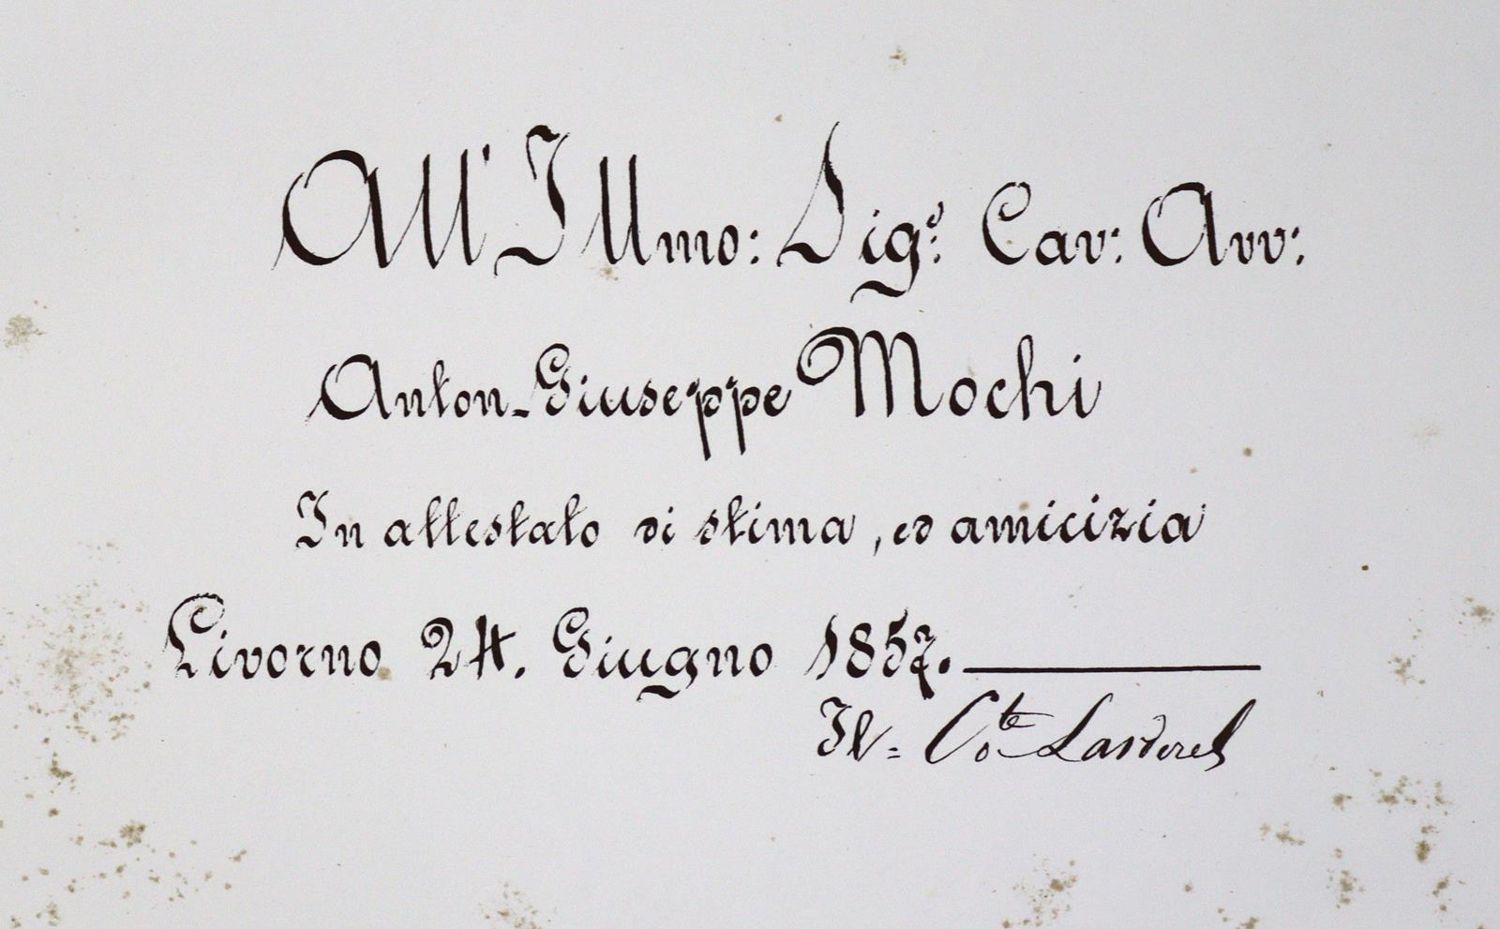 All'Illmo: Sigᵒ: Cav: Avv:
Anton-Giuseppe Mochi
In attestato di stima, ed amicizia
Livorno 24. Giugno 1857.
Il= Cᵒte Larderel